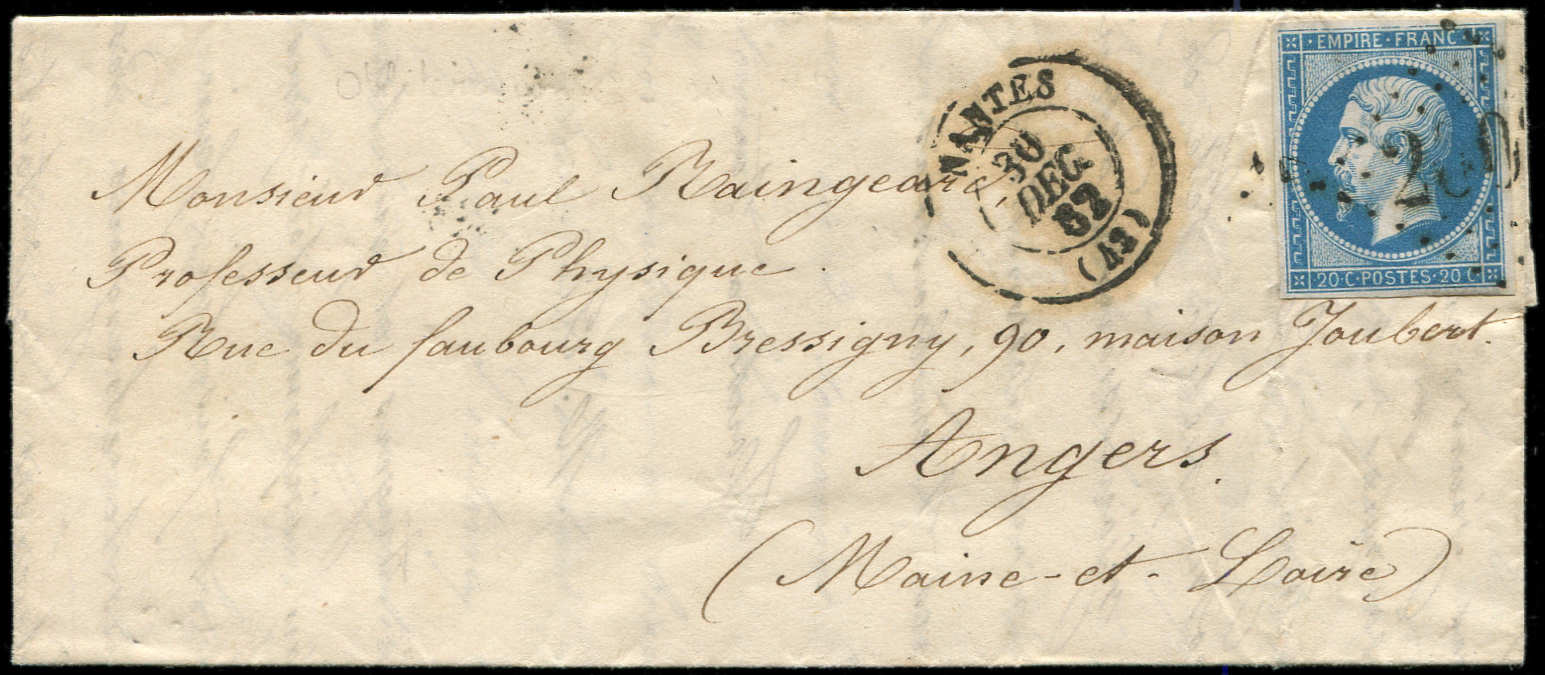 EMPIRE · FRANC
NANTES
30
DEC.
(42)
20 C · POSTES · 20 C
Monsieur Paul Raingeard,
Professeur de Physique.
Rue du faubourg Bressigny, 90, maison Joubert.
Angers.
(Maine-et-Loire)